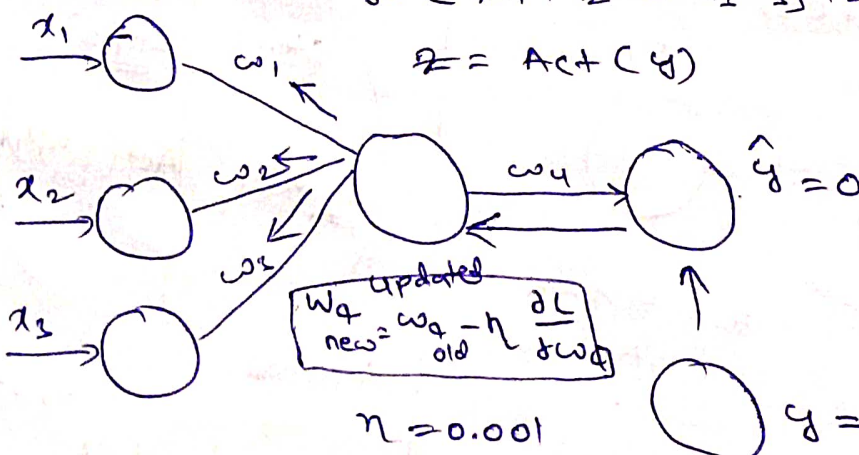 x₁
ω₁
z = Act (y)
x₂
ω₂
ω₄
ŷ = 0
ω₃
x₃
updated
W₄ new = ω₄ old - η ∂L/∂ω₄
η = 0.001
y =